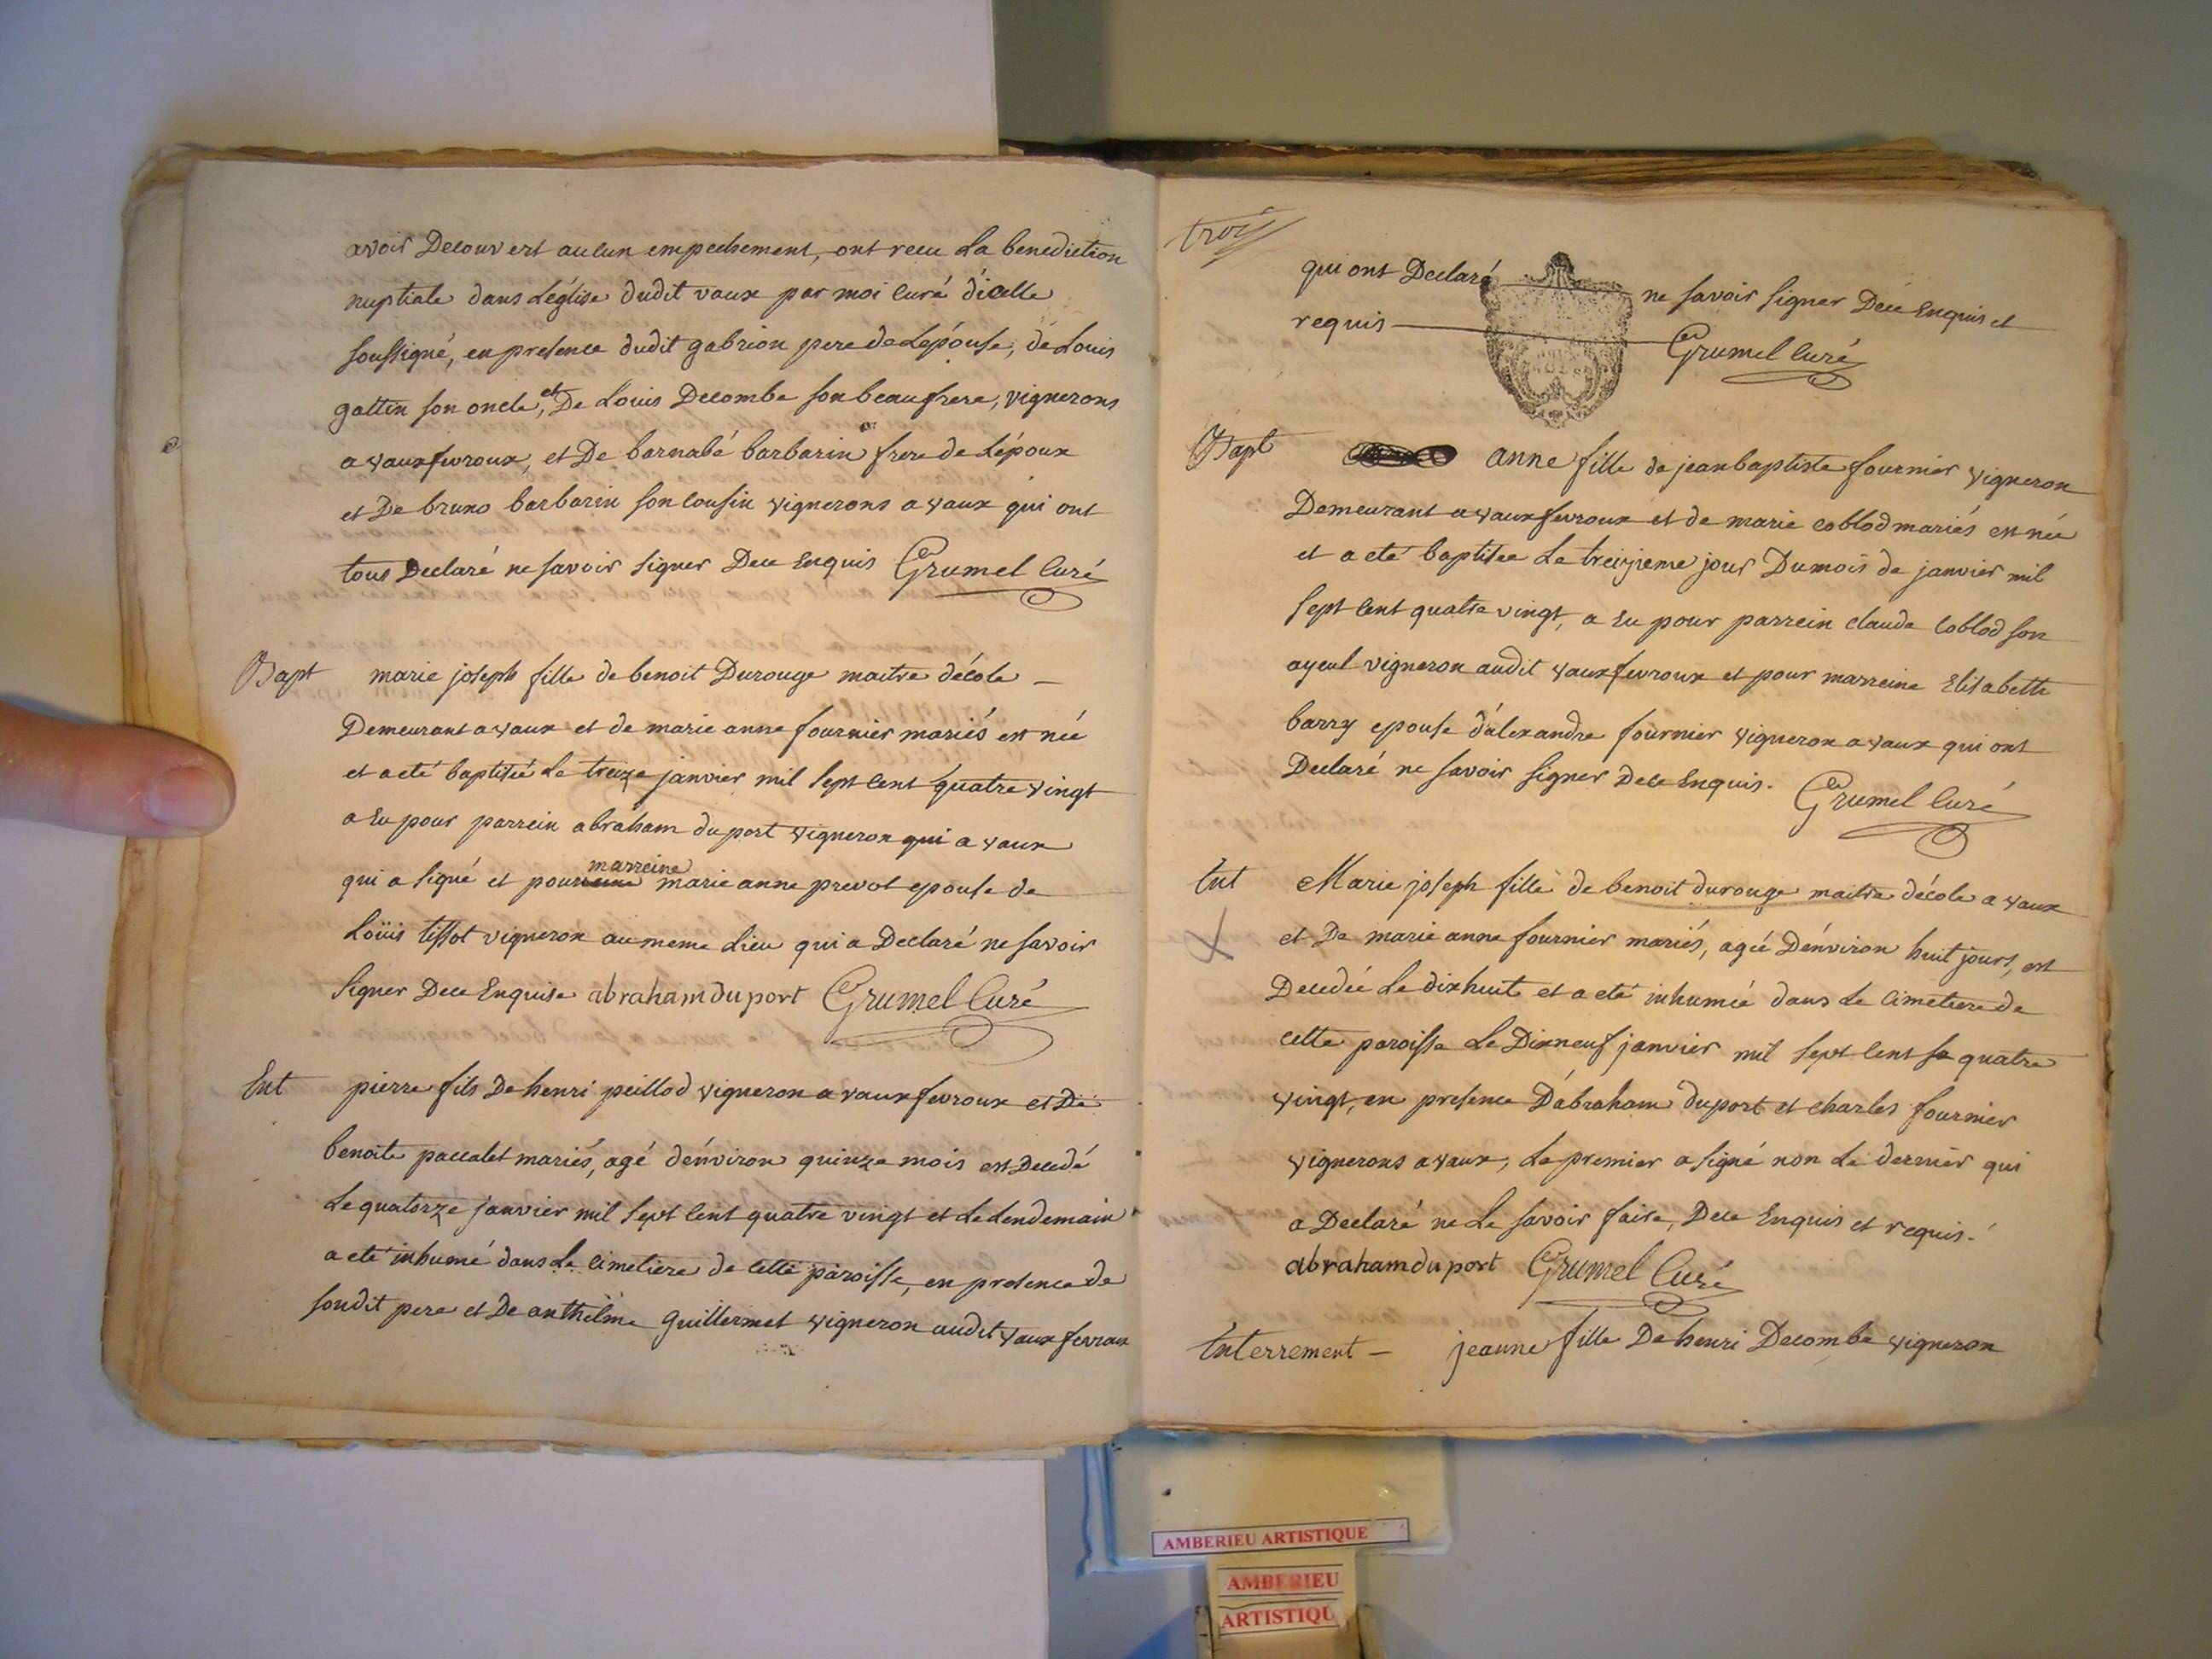 avoir Decouvert aucun empechement, ont recu La benediction
nuptiale dans Léglise dudit vaux par moi curé d'icelle
soussigné, en presence dudit gabrion pere de Lépouse, de Louis
gottin son oncle, et De Louis Decombe son beaufrere, vignerons
a vauxfevroux, et De barnabé barbarin frere de Lépoux
et De bruno barbarin son cousin vignerons a vaux qui ont
tous Declaré ne savoir signer Dece Enquis Grumel Curé
Bapt marie joseph fille de benoit Durouge maitre décole —
Demeurant a vaux et de marie anne fournier mariés est née
et a eté baptisée Le treize janvier mil sept cent quatre vingt
a Eu pour parrein abraham duport vigneron qui a vaux
qui a signé et pour marreine marie anne prevot epouse de
Loüis tissot vigneron au meme Lieu qui a Declaré ne savoir
signer Dece Enquise abraham duport Grumel Curé
Ent pierre fils De henri peillod vigneron a vauxfevroux et De
benoite paccalet mariés, agé d'énviron quinze mois est Decedé
Le quatorze janvier mil sept cent quatre vingt et Le Lendemain
a eté inhumé dans Le cimetiere de cette paroisse, en presence de
sondit pere et De anthelme Guillermet vigneron audit vauxfevroux
trois
qui ont Declaré ne savoir signer Dece Enquis et
requis Grumel Curé
Bapt anne fille de jean baptiste fournier vigneron
Demeurant a vauxfevroux et de marie coblod mariés est née
et a eté baptisée Le treizieme jour Du mois de janvier mil
sept cent quatre vingt, a Eu pour parrein claude coblod son
ayeul vigneron audit vauxfevroux et pour marreine Elisabeth
barry epouse d'alexandre fournier vigneron a vaux qui ont
Declaré ne savoir signer Dece Enquis. Grumel Curé
Ent Marie joseph fille de benoit durouge maitre décole a vaux
et De marie anne fournier mariés, agée D'énviron huit jours, est
Decedée Le dixhuit et a eté inhumée dans Le cimetiere de
cette paroisse Le Dixneuf janvier mil sept cent se quatre
vingt, en presence D'abraham duport et charles fournier
vignerons a vaux, Le premier a signé non Le dernier qui
a Declaré ne Le savoir faire, Dece Enquis et requis.
abraham duport Grumel Curé
Enterrement — jeanne fille De henri Decombe vigneron
AMBERIEU ARTISTIQUE
AMBERIEU
ARTISTIQU